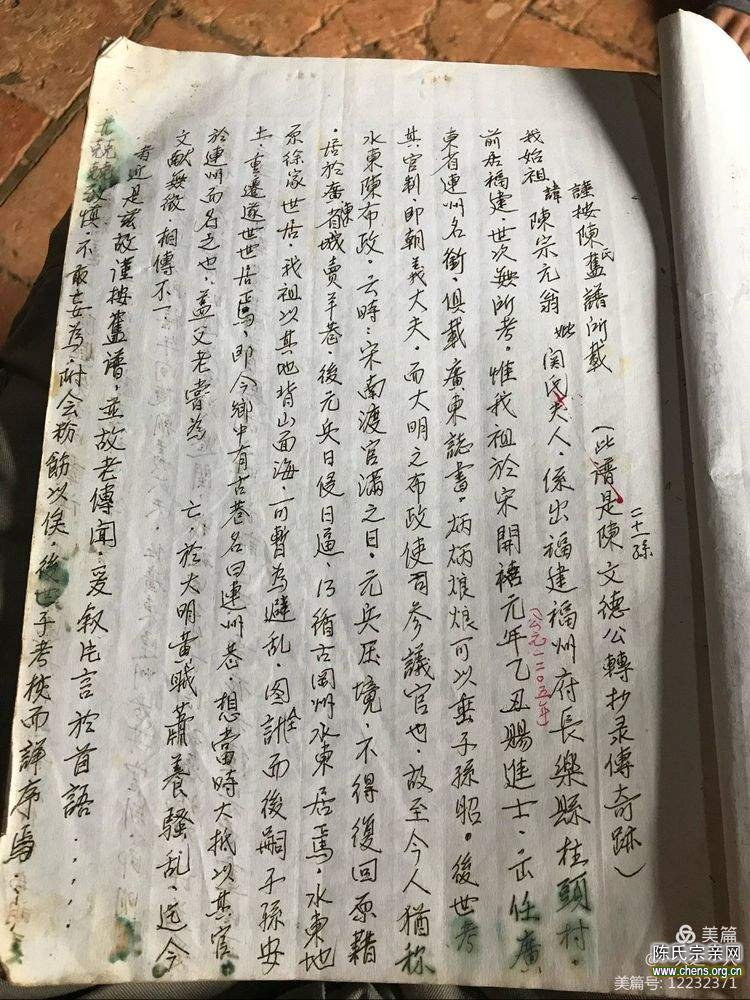 謹按陳氏舊譜所載　(此譜是二十一孫陳文德公轉抄录傳奇跡)
我始祖諱陳宗元翁妣関氏夫人﹐係出福建福州府長樂縣桂頭村﹐
前居福建﹐世次無所考﹐惟我祖於宋開禧元年乙丑賜進士﹐出任廣
(公元一二〇五年)
東省連州名銜﹐俱載廣東誌書﹐炳炳烺烺可以垂子孫昭﹐後世考
其官制﹐即朝義大夫﹐而大明之布政使司参議官也﹐故至今人猶称
水東陳布政﹐云時:宋南渡官滿之日﹐元兵压境﹐不得復回原藉
﹐居於廣東省城賣羊巷﹐後元兵日侵日逼﹐乃循古岡州水東居焉﹐水東地
原徐家世居﹐我祖以其地背山面海﹐可暫為避乱﹐图全計而後嗣子孫安
土﹐重遷遂世世居焉﹐即今鄉中有古巷名曰連州巷﹐想當時大抵以其官
於連州而名之也﹐盖父老嘗為　亡﹐於大明黄賊蕭養騷乱﹐迄今
文献無徵　相傳不一
者近是兹故謹按舊譜﹐並故老傳闻﹐爰叙片言於首語....
尤兢兢敬慎不敢妄為﹐附会粉飾以俟﹐後世子考核而譯序焉
美篇
陈氏宗亲网
www.chens.org.cn
美篇号: 12232371